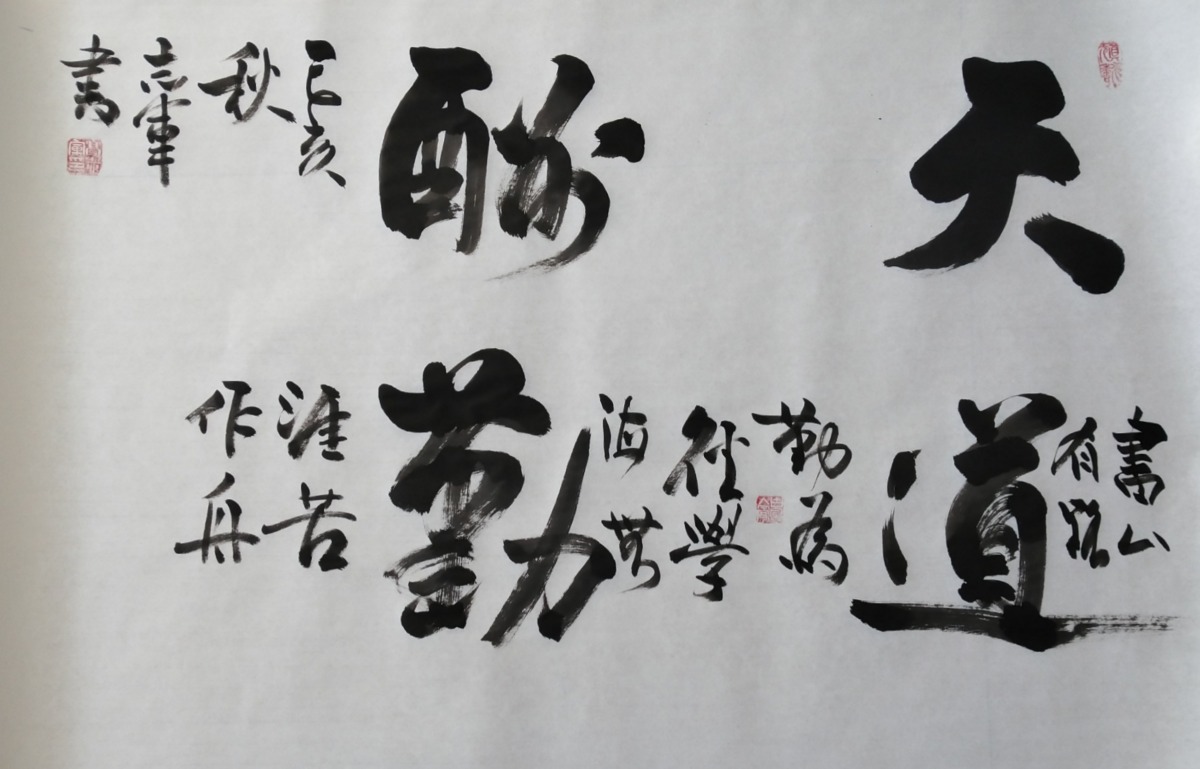 天道
酬勤
書山
有路
勤為
徑學
海無
涯苦
作舟
己亥
秋
志軍
書